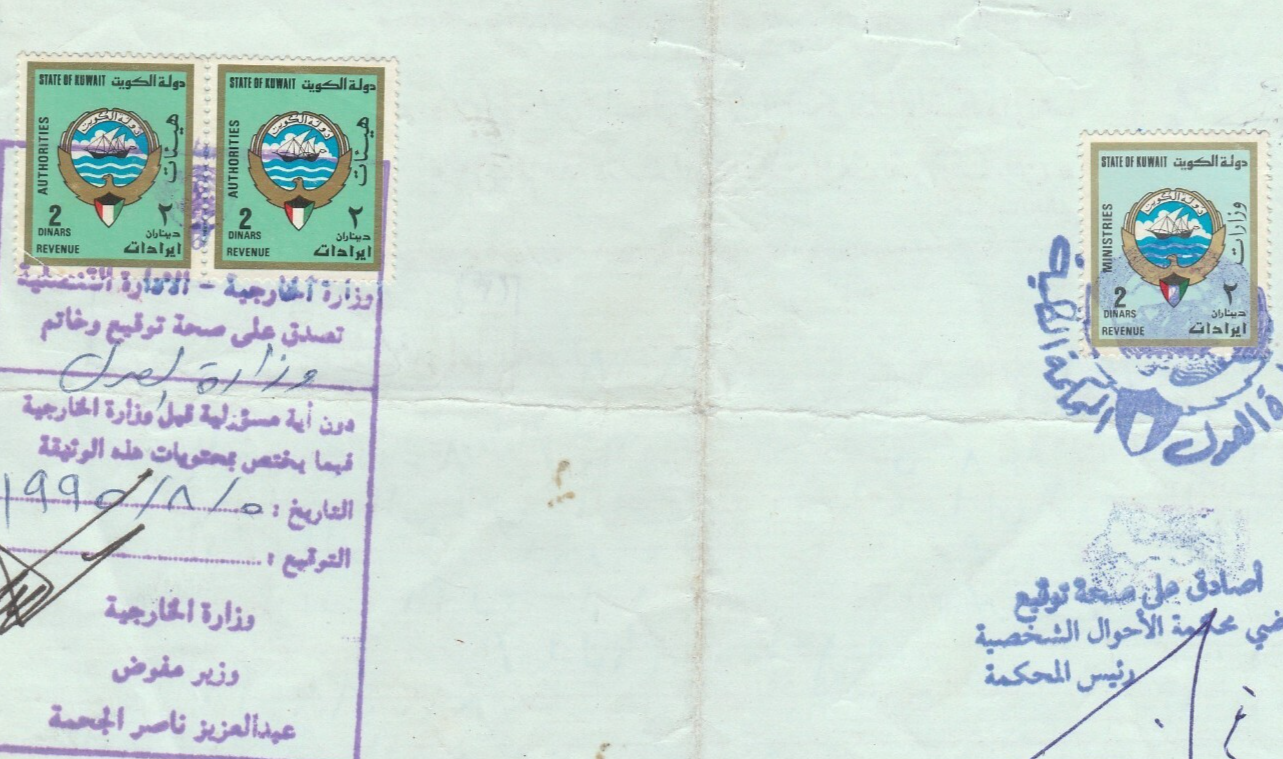 STATE OF KUWAIT دولة الكويت
دولة الكويت
AUTHORITIES
هيئات
2 ٢
DINARS ديناران
REVENUE ايرادات
STATE OF KUWAIT دولة الكويت
دولة الكويت
AUTHORITIES
هيئات
2 ٢
DINARS ديناران
REVENUE ايرادات
وزارة الخارجية - الادارة القنصلية
تصدق على صحة توقيع وخاتم
وزارة العدل
دون أية مسؤولية قبل وزارة الخارجية
فيما يختص بمحتويات هذه الوثيقة
التاريخ : ١٩٩٥/٨/٥
التوقيع :
وزارة الخارجية
وزير مفوض
عبدالعزيز ناصر الجحمة
STATE OF KUWAIT دولة الكويت
دولة الكويت
MINISTRIES
وزارات
2 ٢
DINARS ديناران
REVENUE ايرادات
العدل
المحكمة الكلية
أصادق على صحة توقيع
محكمة الأحوال الشخصية
رئيس المحكمة